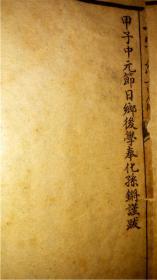 甲子中元節日鄉後學奉化孫鏘謹跋